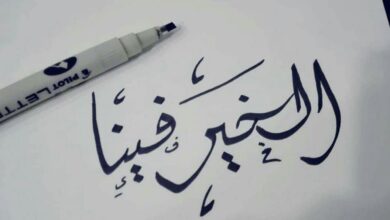 الخير فينا
PILOT LETT